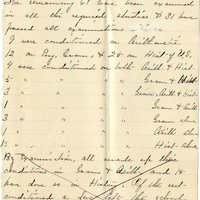 remaining 61 had been examined
in all the required studies & 31 have
passed all examinations
9 were conditioned on Arithmetic
12 on Eng. Gram. & 2 on Hist. of U.S.
4 were conditioned on both Arith & Hist.
5 " " " " Gram & Hist
3 " " " Gram, Arith & Hist.
1 " " " Gram & Arith
3 " " " Gram alone
1 " " " Arith alone
1 " " " Hist. alone
By examination, all made up their
condition in Gram & Arith, and 14
have done so in History. Of the rest
conditioned a few left the school